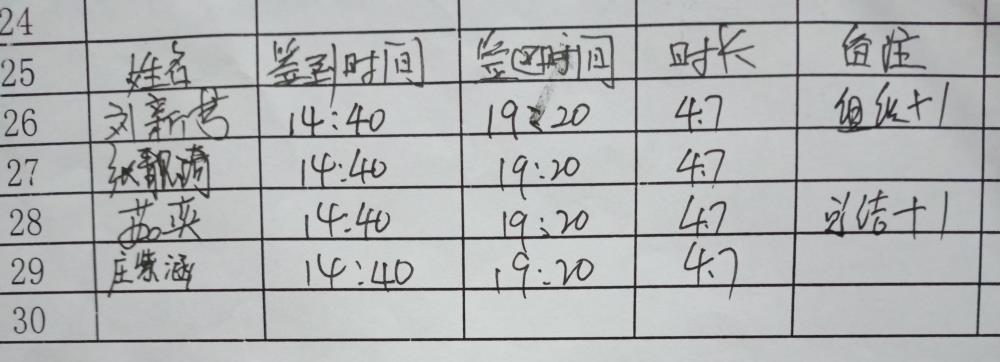 24
25 姓名 签到时间 签退时间 时长 备注
26 刘新 14:40 19:20 4.7 组织+1
27 张靓琦 14:40 19:20 4.7
28 苏奕 14:40 19:20 4.7 总结+1
29 庄紫涵 14:40 19:20 4.7
30